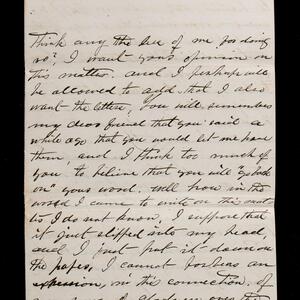 think any the less of me for doing
so? I want your opinion on
this matter. and I perhaps will
be allowed to add that I also
want the letters, you will remember
my dear friend that you said a
while ago that you would let me have
them, and I think too much of
you to believe that you will "go back
on" your word. Well how in the
world I came to write on this matter
I do not know, I suppose that
it just slipped into my head,
and I just put it down on
the paper, I cannot forbear an
expression, in this connection, of